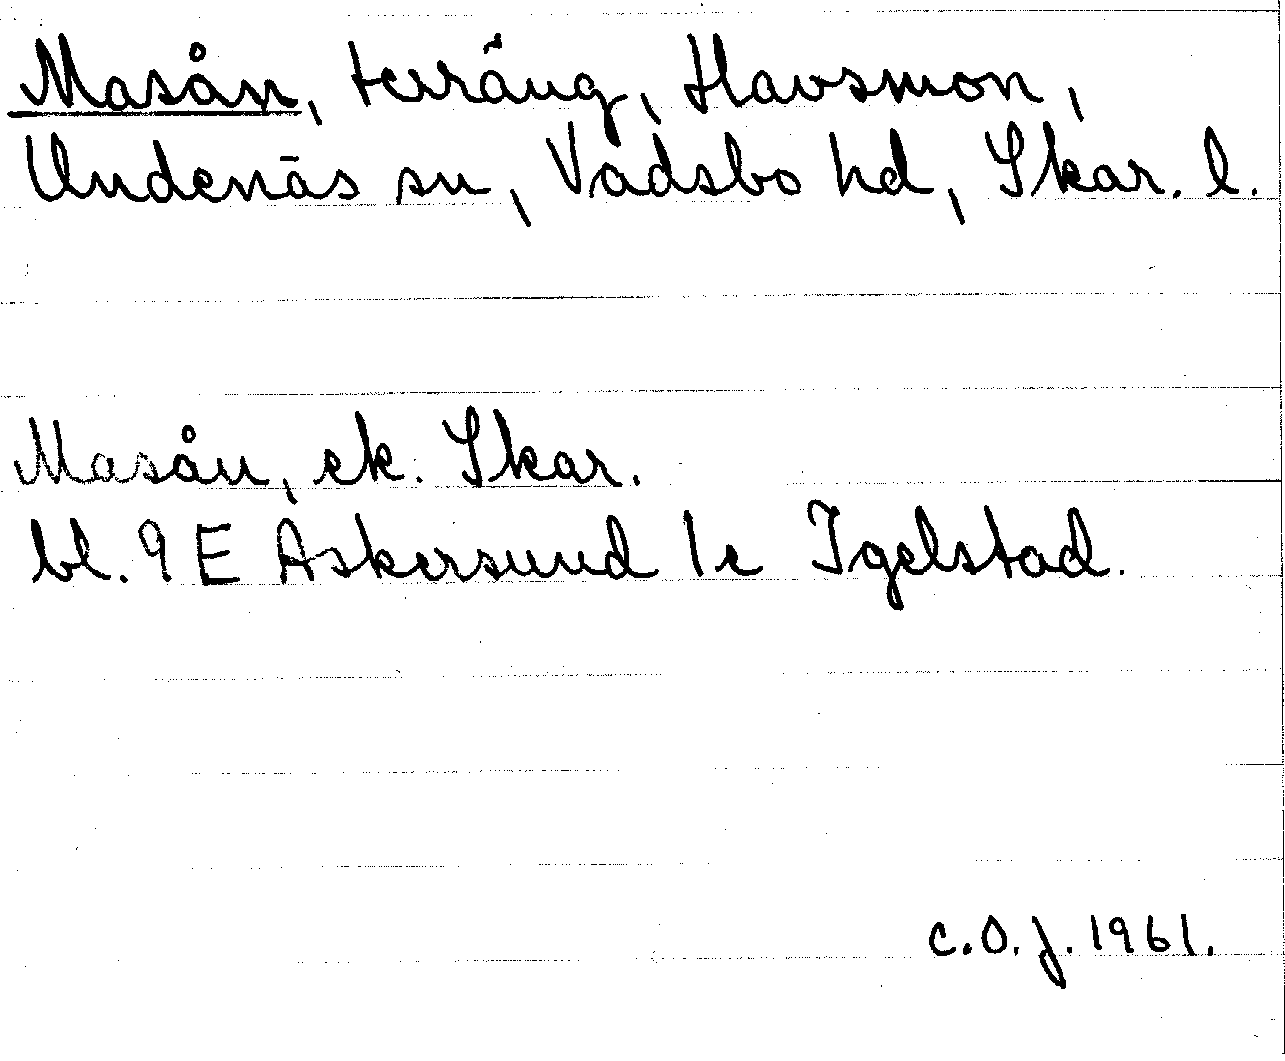 Masån, terräng, Havsmon,
Undenäs sn, Vadsbo hd, Skar. l.
Masån, ek. Skar.
bl. 9 E Askersund 1c Igelstad.
C.O.J. 1961.